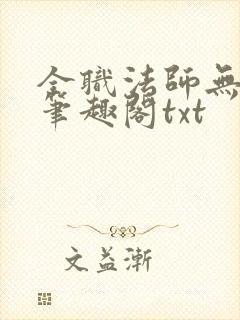 全職法師無
筆趣閣txt
文益漸